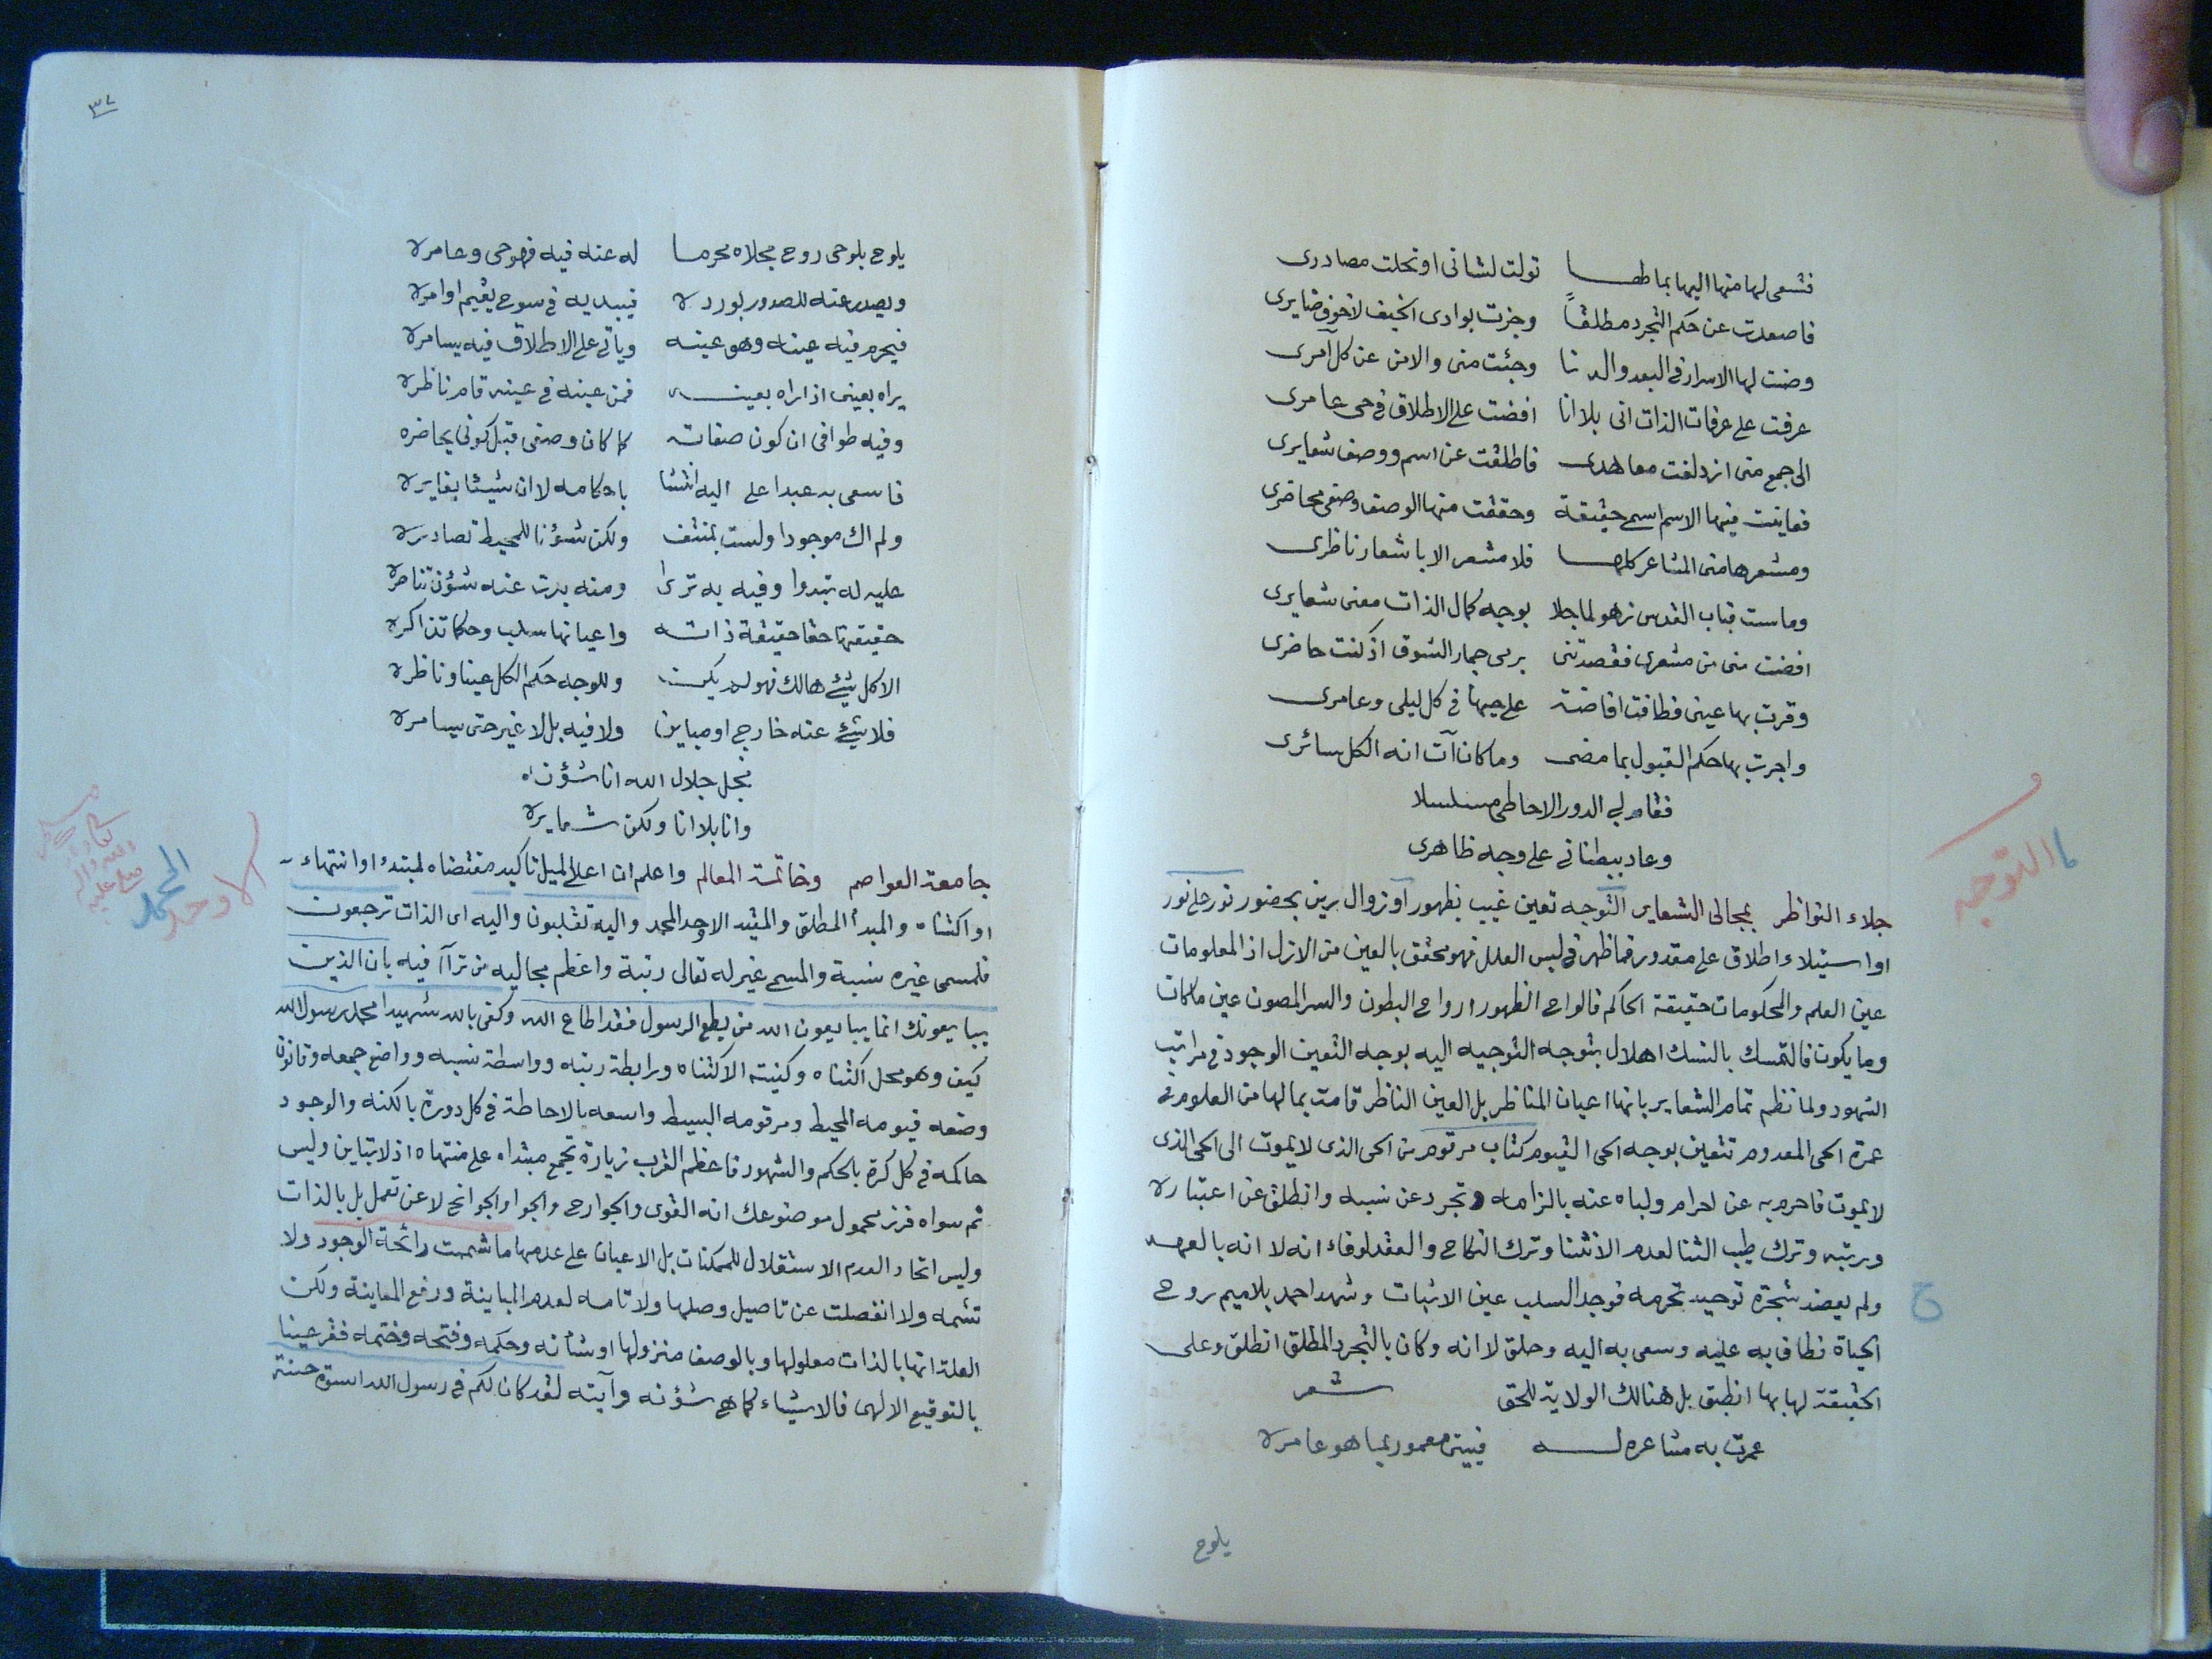 فتسعى لها منها اليها بما طهــا تولت لشانى او تحلت مصادرى
فاصعدت عن حكم التجرد مطلقاً وجزت بوادى الخيف لا خوف ضايرى
وضنت لها الاسرار فى البعد والدنا وجئت منى والامن عن كل آمرى
عرفت على عرفات الذات انى بلا انا افضت على الاطلاق فى حى عامرى
الى جمع منى ازدلفت معاهدى فاطلقت عن اسم ووصف شعايرى
فعاينت فيها الاسم اسمى حقيقة وحققت منها الوصف وصفى محاضرى
ومشعرها منى المشاعر كلهــا فلا مشعر الا باشعار ناظرى
وماست قباب القدس زهو لما جلا بوجه كمال الذات معنى شعايرى
افضت منى من مشعرى فقصدتنى برمى جمار الشوق اذ كنت حاضرى
وقرت بها عينى فطافت افاضة على حيها فى كل ليلى وعامرى
واجرت بها حكم القبول بما مضى وما كان آت انه الكل سائرى
فقام لى الدور الاحاطى مسلسلا
وعاد ببطنانى على وجه ظاهرى
جلاء النواظر بمجالى الشعاير التوجه تعين غيب بظهور او زوال رين بحضور نور على نور
او استيلاء اطلاق على مقدور فما ظهر فى لبس العلل فهو محقق بالعين من الازل اذ المعلومات
عين العلم والمحكومات حقيقة الحاكم فالواح الظهور ارواح البطون والسر المصون عين ما كان
وما يكون فالتمسك بالنسك اهلال بتوجه التوجيه اليه بوجه التعين الوجود فى مراتب
الشهود ولما نظم تمام الشعاير بانها اعيان المناظر بل العين الناظر قامت بما لها من العلوم فى
عمرة الحى المعدوم تتعين بوجه الحى القيوم كتاب مرقوم من الحى الذى لا يموت الى الحى الذى
لا يموت فاحرم به عن احرام ولباه عنه بالزامه وتجرد عن نسبه وانطلق عن اعتباره
ورتبه وترك طيب الثنا لعدم الاثنينا وترك النكاح والعقد لوفاء انه لا انه بالعهد
ولم يعضد شجرة توحيد تحرمه فوجد السلب عين الاثبات وشهد احمد بلا ميم روح
الحياة فطاف به عليه وسعى به اليه وحلق لا انه وكان بالتجرد المطلق انطلق وعلى
الحقيقة لها بها انطبق بل هنالك الولاية للحق شعر
عمرت به مشاعره لــه فبيتى معمور بما هو عامره
يلوح
ما التوجه
ح
٣٧
يلوح بلوحى روح مجلاه محرما له عنه فيه فهو حى وعامره
ويصدر عنه للصدور بورده فيبديه فى سوح يقيم اوامره
فيحرم فيه عينه وهو عينه وياتى على الاطلاق فيه يسامره
يراه بعينى اذ اراه بعينه فمن عينه فى عينه قام ناظره
وفيه طوافى ان كون صفاته كما كان وصفى قبل كونى يحاضره
فاسعى به عبدا على اليه انتشا باحكامه لا ان شيئا يغايره
ولم اك موجودا ولست بمنتف ولكن شؤنا للمحيط تصادره
عليه له تبدوا وفيه به ترى ومنه بدت عنه شؤن تناصره
حقيقتها حقا حقيقة ذاته واعيانها سلب وحكما تذاكره
الا كل شئ هالك فهو لم يكن وللوجه حكم الكل عينا وناظره
فلا شئ عنه خارج او مباين ولا فيه بل لا غير حتى يسامره
فجل جلال الله انا شؤنه
وانا بلا انا ولكن شعايره
جامعة العواصم وخاتمة المعالم واعلم ان اعلى الميل تاكيد مقتضاه لمبتدء او انتهاء
او اكتناه والمبدأ المطلق والمقيد الاوحد المحمد واليه تقلبون واليه اى الذات ترجعون
فلمسمى غيره نسبة والمسمى غير له تعالى رتبة واعظم مجاليه من ترآأ فيه بان الذين
يبايعونك انما يبايعون الله من يطع الرسول فقد اطاع الله وكفى بالله شهيدا محمد رسول الله
كيف وهو محل اكتناه وكنيته الاكتناه ورابطة رتبه وواسطة نسبه وواضع جمعه وقانون
وضعه فيومه المحيط ومرقومه البسيط واسعه بالاحاطة فى كل دورة بالكنه والوجود
حاكمه فى كل كرة بالحكم والشهود فاعظم القرب زيارة تجمع مبتداه على منتهاه اذ لا تباين وليس
ثم سواه فزر محمول موضوعك انه القوى والجوارح والجوا والجوانح لا عن تعمل بل بالذات
وليس اتحاد العدم الاستقلال للممكنات بل الاعيان على عدمها ما شمت رائحة الوجود ولا
تشمه ولا انفصلت عن تاصيل وصلها ولا تامه لعدم المباينة ورفع المعاينة ولكن
العلة انها بالذات معلولها وبالوصف منزولها او شأنه وحكمه وفتحه وختمه فقر عينا
بالتوقيع الالهى فالاشياء كما هى شؤنه وآيته لقد كان لكم فى رسول الله اسوة حسنة
الاوحد
المحمد
صلى الله عليه